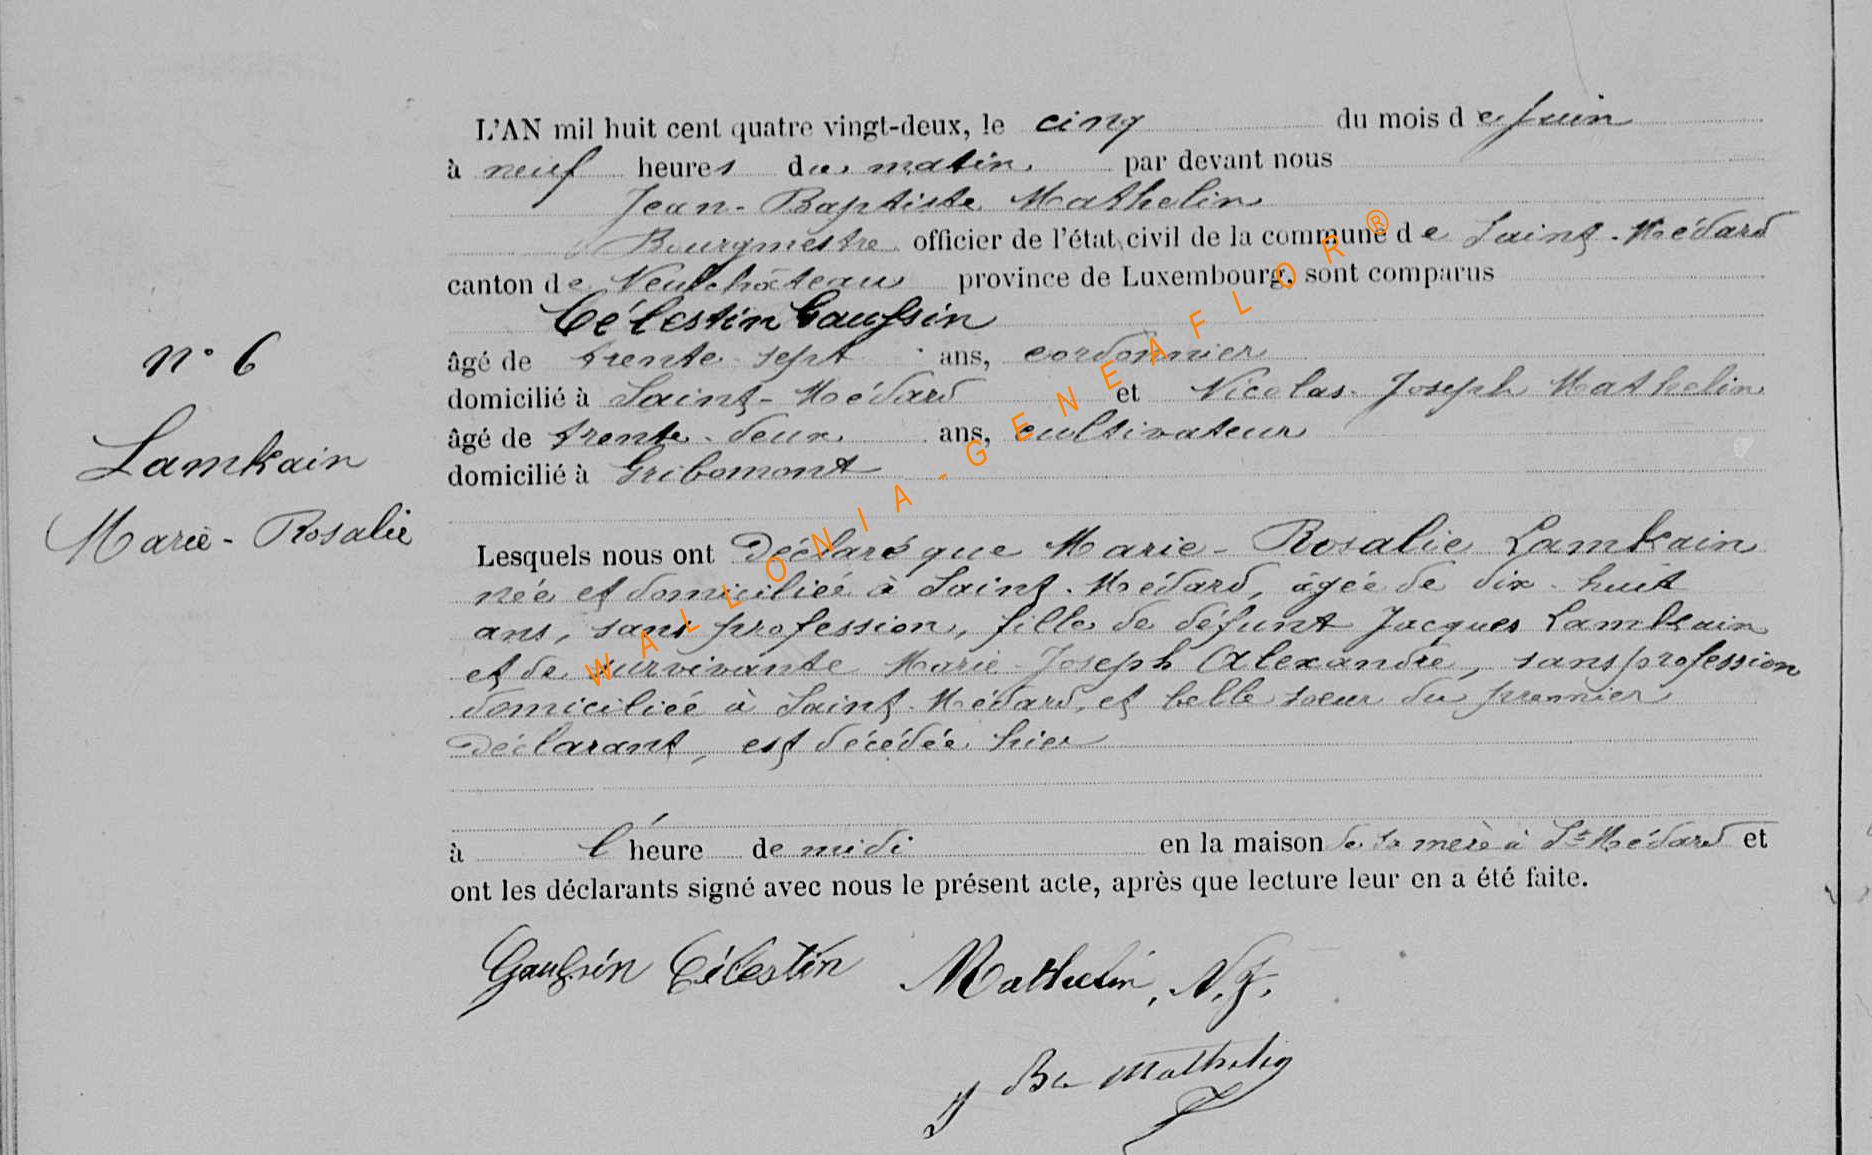 L'AN mil huit cent quatre vingt-deux, le cinq du mois de Juin
à neuf heures du matin par devant nous
Jean-Baptiste Mathelin
Bourgmestre officier de l'état civil de la commune de Saint-Médard
canton de Neufchâteau province de Luxembourg, sont comparus
Célestin Gaussin
âgé de trente sept ans, cordonnier
domicilié à Saint-Médard et Nicolas-Joseph Mathelin
âgé de trente-deux ans, cultivateur
domicilié à Gribomont
n° 6
Lamkain
Marie-Rosalie
Lesquels nous ont déclaré que Marie-Rosalie Lamkain
née et domiciliée à Saint-Médard, âgée de dix-huit
ans, sans profession, fille de défunt Jacques Lamkain
et de survivante Marie-Joseph Alexandre, sans profession
domiciliée à Saint-Médard, et belle soeur du premier
déclarant, est décédée hier
à l'heure de midi en la maison de sa mère à St Médard et
ont les déclarants signé avec nous le présent acte, après que lecture leur en a été faite.
Gaussin Célestin Mathelin, N.J.
J Bte Mathelin
WALLONIA-GENEAFLOR®